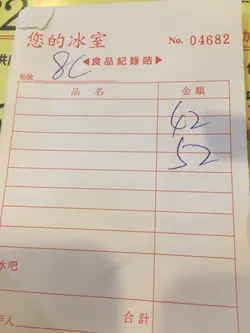 您的冰室 No. 04682
枱號 8C ◀食品紀錄咭▶
品名 金額
42
52
水吧
人 合計